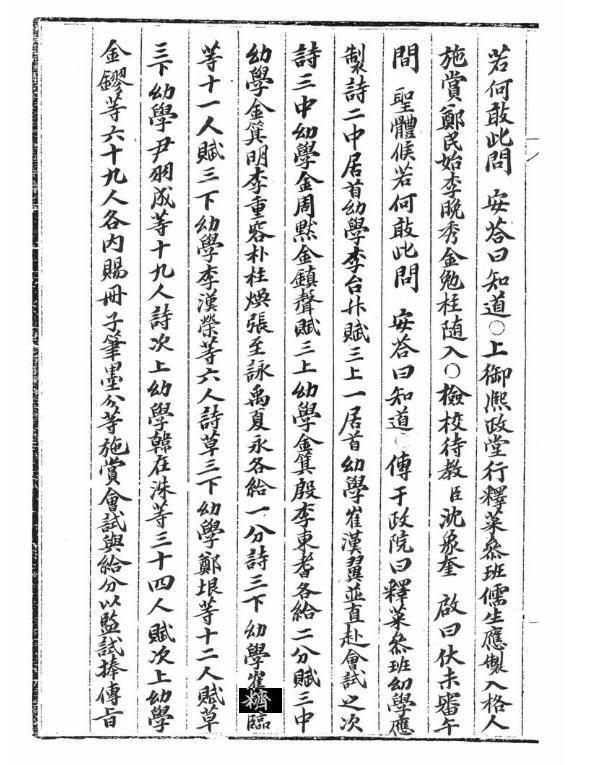 若何敢此問 安答曰知道○上御熙政堂行釋菜參班儒生應製入格人
施賞鄭民始李晚秀金勉柱随入○檢校待教臣沈象奎 啟曰伏未審午
間 聖體候若何敢此問 安答曰知道○傳于政院曰釋菜叅班幼學應
製詩二中居首幼學李台升賦三上一居首幼學崔漢翼並直赴會試之次
詩三中幼學金周黙金鎮聲賦三上幼學金箕殷李東耆各給二分賦三中
幼學金箕明李重容朴柱煥張至詠禹夏永各給一分詩三下 幼學崔 臨
等十一人賦三下幼學李漢榮等六人詩草三下幼學鄭垠等十二人賦草
三下幼學尹 成等十九人詩次上幼學韓在洙等三十四人賦次上幼學
金鏐等六十九人各内賜冊子筆墨分等施賞會試與給分以監試捧傳旨